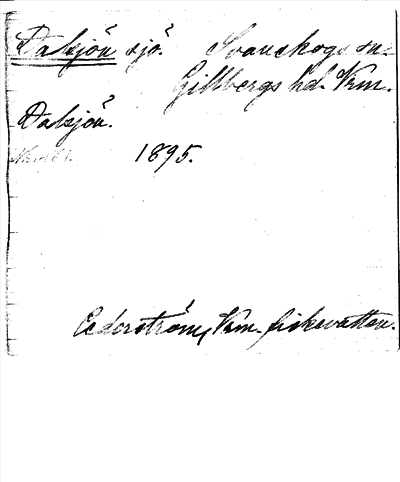 Dalsjön sjö. Svanskogs sn.
Gillbergs hd. Vrm.
Dalsjön.
1895.
Cederström, Vrm. fiskevatten.